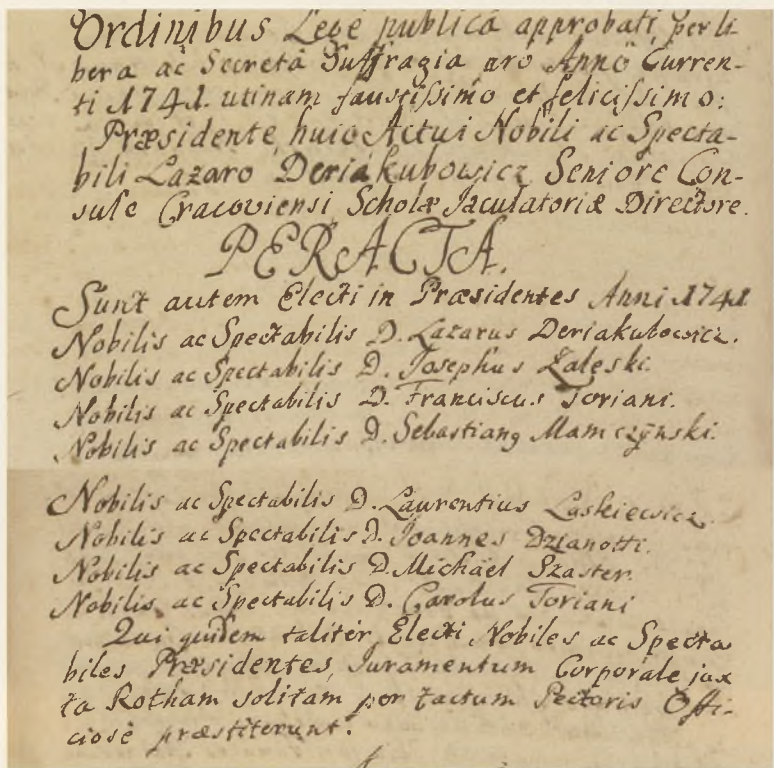 Ordinibus Lege publicâ approbati, per li-
bera ac Secreta Suffragia pro Annô Curren-
ti 1741. utinam faustissimo et felicissimo:
Præsidente huic Actui Nobili ac Specta-
bili Lazaro Deriakubowicz Seniore Con-
sule Cracoviensi Scholæ Jaculatoriæ Directore.
PERACTA.
Sunt autem Electi in Præsidentes Anni 1741
Nobilis ac Spectabilis D. Lazarus Deriakubowicz.
Nobilis ac Spectabilis D. Josephus Zaleski.
Nobilis ac Spectabilis D. Franciscus Toriani.
Nobilis ac Spectabilis D. Sebastianꝰ Mamczÿnski.
Nobilis ac Spectabilis D. Laurentius Laskiewicz.
Nobilis ac Spectabilis D. Joannes Dzianotti.
Nobilis ac Spectabilis D. Michäel Szaster.
Nobilis ac Spectabilis D. Carolus Toriani
Qui quidem talitèr Electi Nobiles ac Specta
biles Præsidentes, Juramentum Corporale jux
ta Rotham solitam per tactum Pectoris Offi-
ciosè præstiterunt.